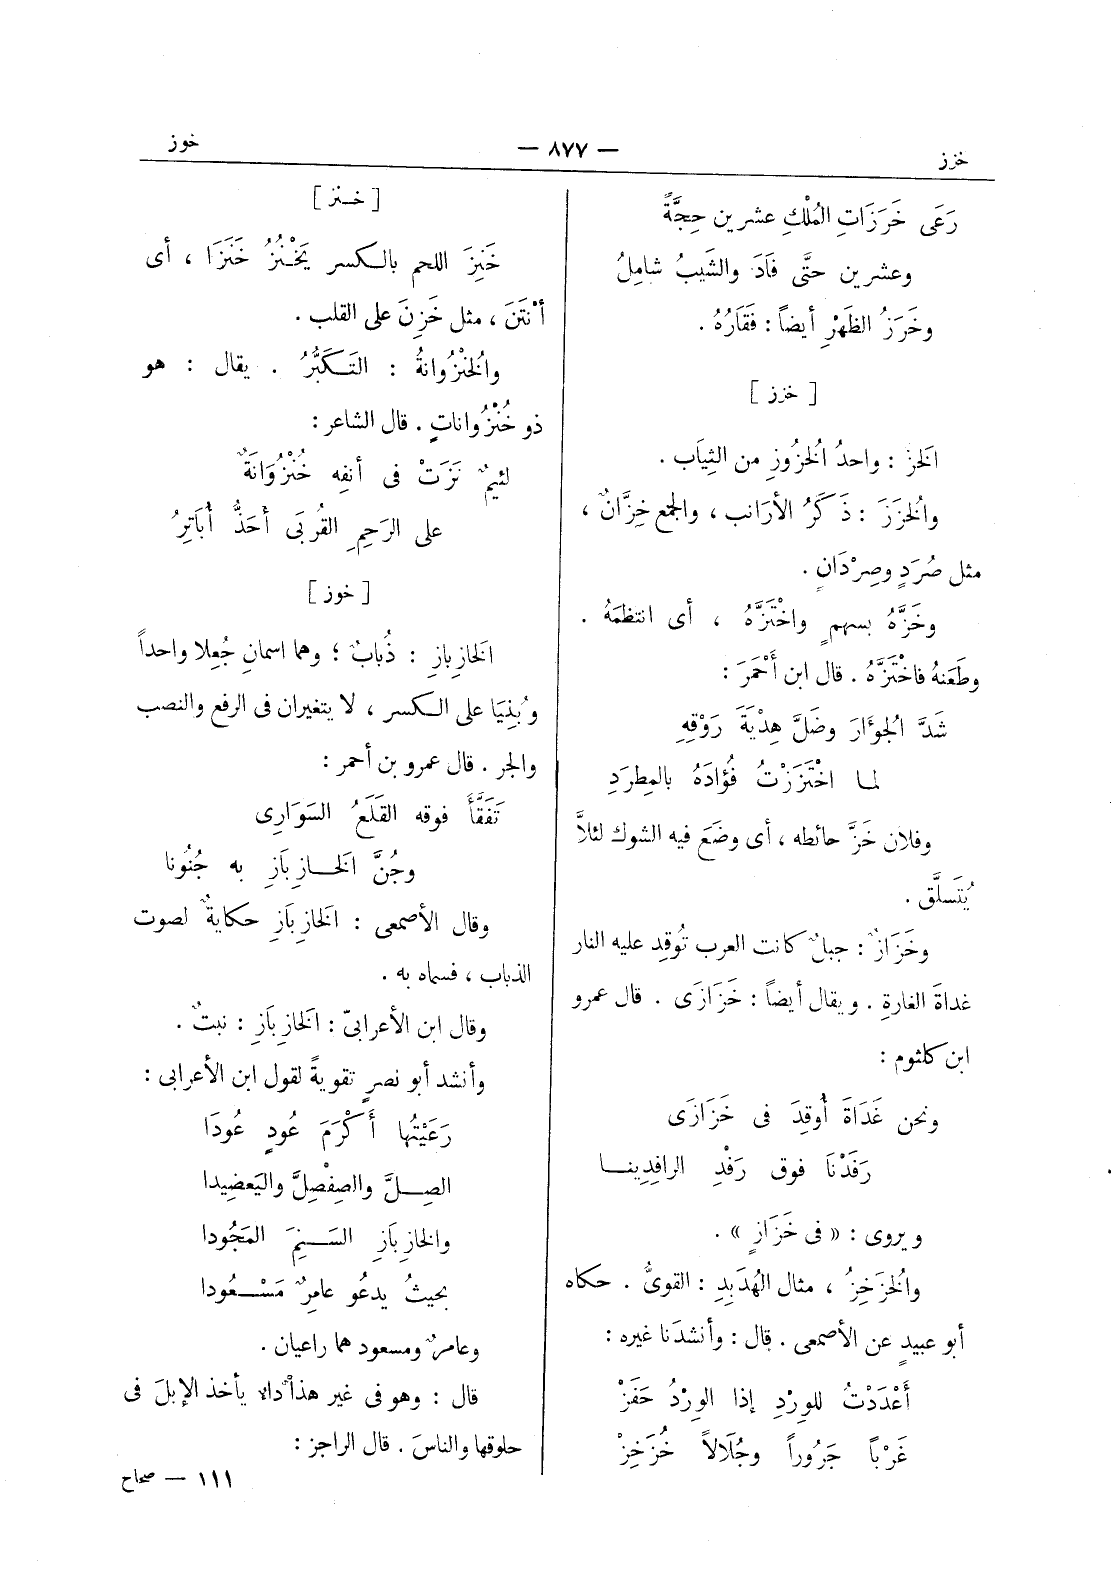 خزز
— ٨٧٧ —
خوز
رَعَى خَرَزَاتِ المُلْكِ عشرين حِجَّةً
وعشرين حتَّى فَادَ والشَيبُ شامِلُ
وخَرَزُ الظَهْرِ أيضاً : فَقَارُهُ .
[ خزز ]
الخَزُّ : واحدُ الخُزُوزِ من الثِيَاب .
والخُزَزُ : ذَكَرُ الأرَانب ، والجمع خِزَّانٌ ،
مثل صُرَدٍ وصِرْدَانٍ .
وخَزَّهُ بسهمٍ واخْتَزَّهُ ، أى انتظمَهُ .
وطَعَنهُ فاخْتَزَّهُ . قال ابن أَحْمَرَ :
شَدَّ الجُوَّارَ وضَلَّ هِدْيَةَ رَوْقِهِ
لما اخْتَزَزْتُ فُؤَادَهُ بالمِطرَدِ
وفلان خَزَّ حائطه ، أى وضَعَ فيه الشوك لئلاَّ
يُتَسلَّق .
وخَزَازٌ : جبلٌ كانت العرب تُوقِد عليه النار
غداةَ الغارةِ . ويقال أيضاً : خَزَازَى . قال عمرو
ابن كلثوم :
ونحن غَدَاةَ أُوقِدَ فى خَزَازَى
رَفَدْنَا فوق رَفْدِ الرافِدِينا
ويروى : « فى خَزَازٍ » .
والخُزَخِزُ ، مثال الهُدَبِدِ : القوىُّ . حكاه
أبو عبيدٍ عن الأصمعى . قال : وأنشدَنا غيره :
أَعْدَدْتُ للوِرْدِ إذا الوِرْدُ حَفَزْ
غَرْباً جَرُوراً وجُلَالاً خُزَخِزْ
[ خنز ]
خَنِزَ اللحم بالكسر يَخْنَزُ خَنَزَا ، أى
أنْتَنَ ، مثل خَزِنَ على القلب .
والخُنْزُوانةُ : التَكَبُّرُ . يقال : هو
ذو خُنْزُواناتٍ . قال الشاعر :
لئيمٌ نَزَتْ فى أنفِه خُنْزُوَانَةٌ
على الرَحِمِ القُرْبَى أَحَذُّ أُبَاتِرُ
[ خوز ]
الخَازِبازِ : ذُبابٌ ؛ وهما اسمانِ جُعِلا واحداً
وبُنِيَا على الكسر ، لا يتغيران فى الرفع والنصب
والجر . قال عمرو بن أحمر :
تَفَقَّأَ فوقه القَلَعُ السَوَارِى
وجُنَّ الخَازِبَازِ به جُنُونا
وقال الأصمعى : الخَازِبَازِ حكايةٌ لصوت
الذباب ، فسماه به .
وقال ابن الأعرابىّ : الخَازِبَازِ : نبتٌ .
وأنشد أبو نصرٍ تقويةً لقول ابن الأعرابى :
رَعَيْتُها أَكْرَمَ عُودٍ عُودَا
الصِلَّ والصِفْصِلَّ واليَعضِيدا
والخازِبَازِ السَنِمَ المَجُودا
بحيثُ يدعُو عامِرٌ مَسْعُودا
وعامرٌ ومسعود هما راعيان .
قال : وهو فى غير هذا داء يأخذ الإبلَ فى
حلوقها والناسَ . قال الراجز :
١١١ — صحاح